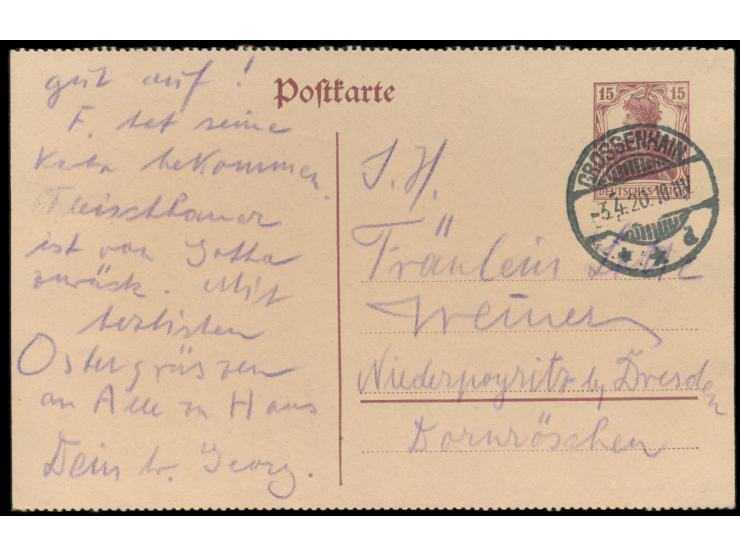 gut auf!
F. hat seine
Karte bekommen.
Fleischhauer
ist von Gotha
zurück. Mit
herzlichsten
Ostergrüssen
an Alle zu Haus
Dein tr. Georg.
Postkarte
15 15
DEUTSCHES
GROSSENHAIN
-3.4.20. 10
d
* *
S. H.
Fräulein
Weiner
Niederpoyritz b/ Dresden
Dornröschen